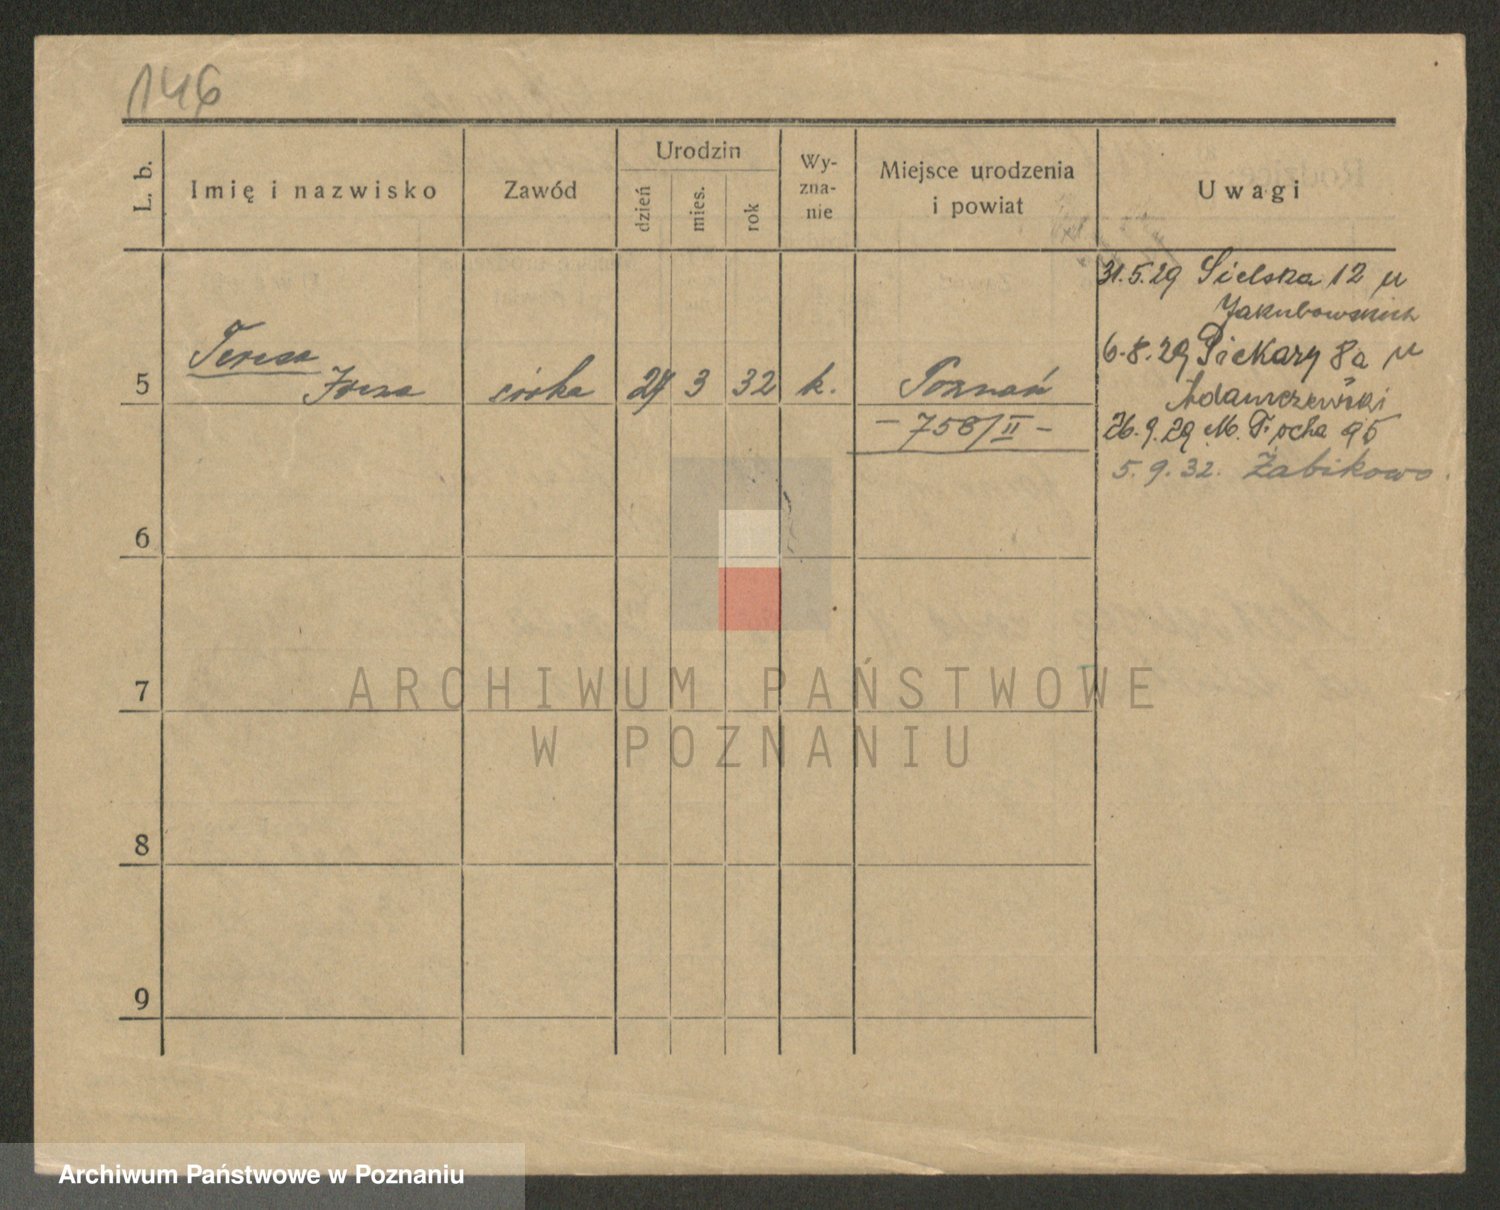 146
L. b.
Imię i nazwisko
Zawód
Urodzin
dzień
mies.
rok
Wy-
zna-
nie
Miejsce urodzenia
i powiat
Uwagi
31.5.29 Sielska 12 u
Jakubowskich
6.8.29 Piekary 8a u
Adamczewski
26.9.29 M. Focha 95
5.9.32. Żabikowo.
5
Teresa
córka
3
32
k.
Poznań
- 758/II -
6
7
8
9
ARCHIWUM PAŃSTWOWE
W POZNANIU
Archiwum Państwowe w Poznaniu